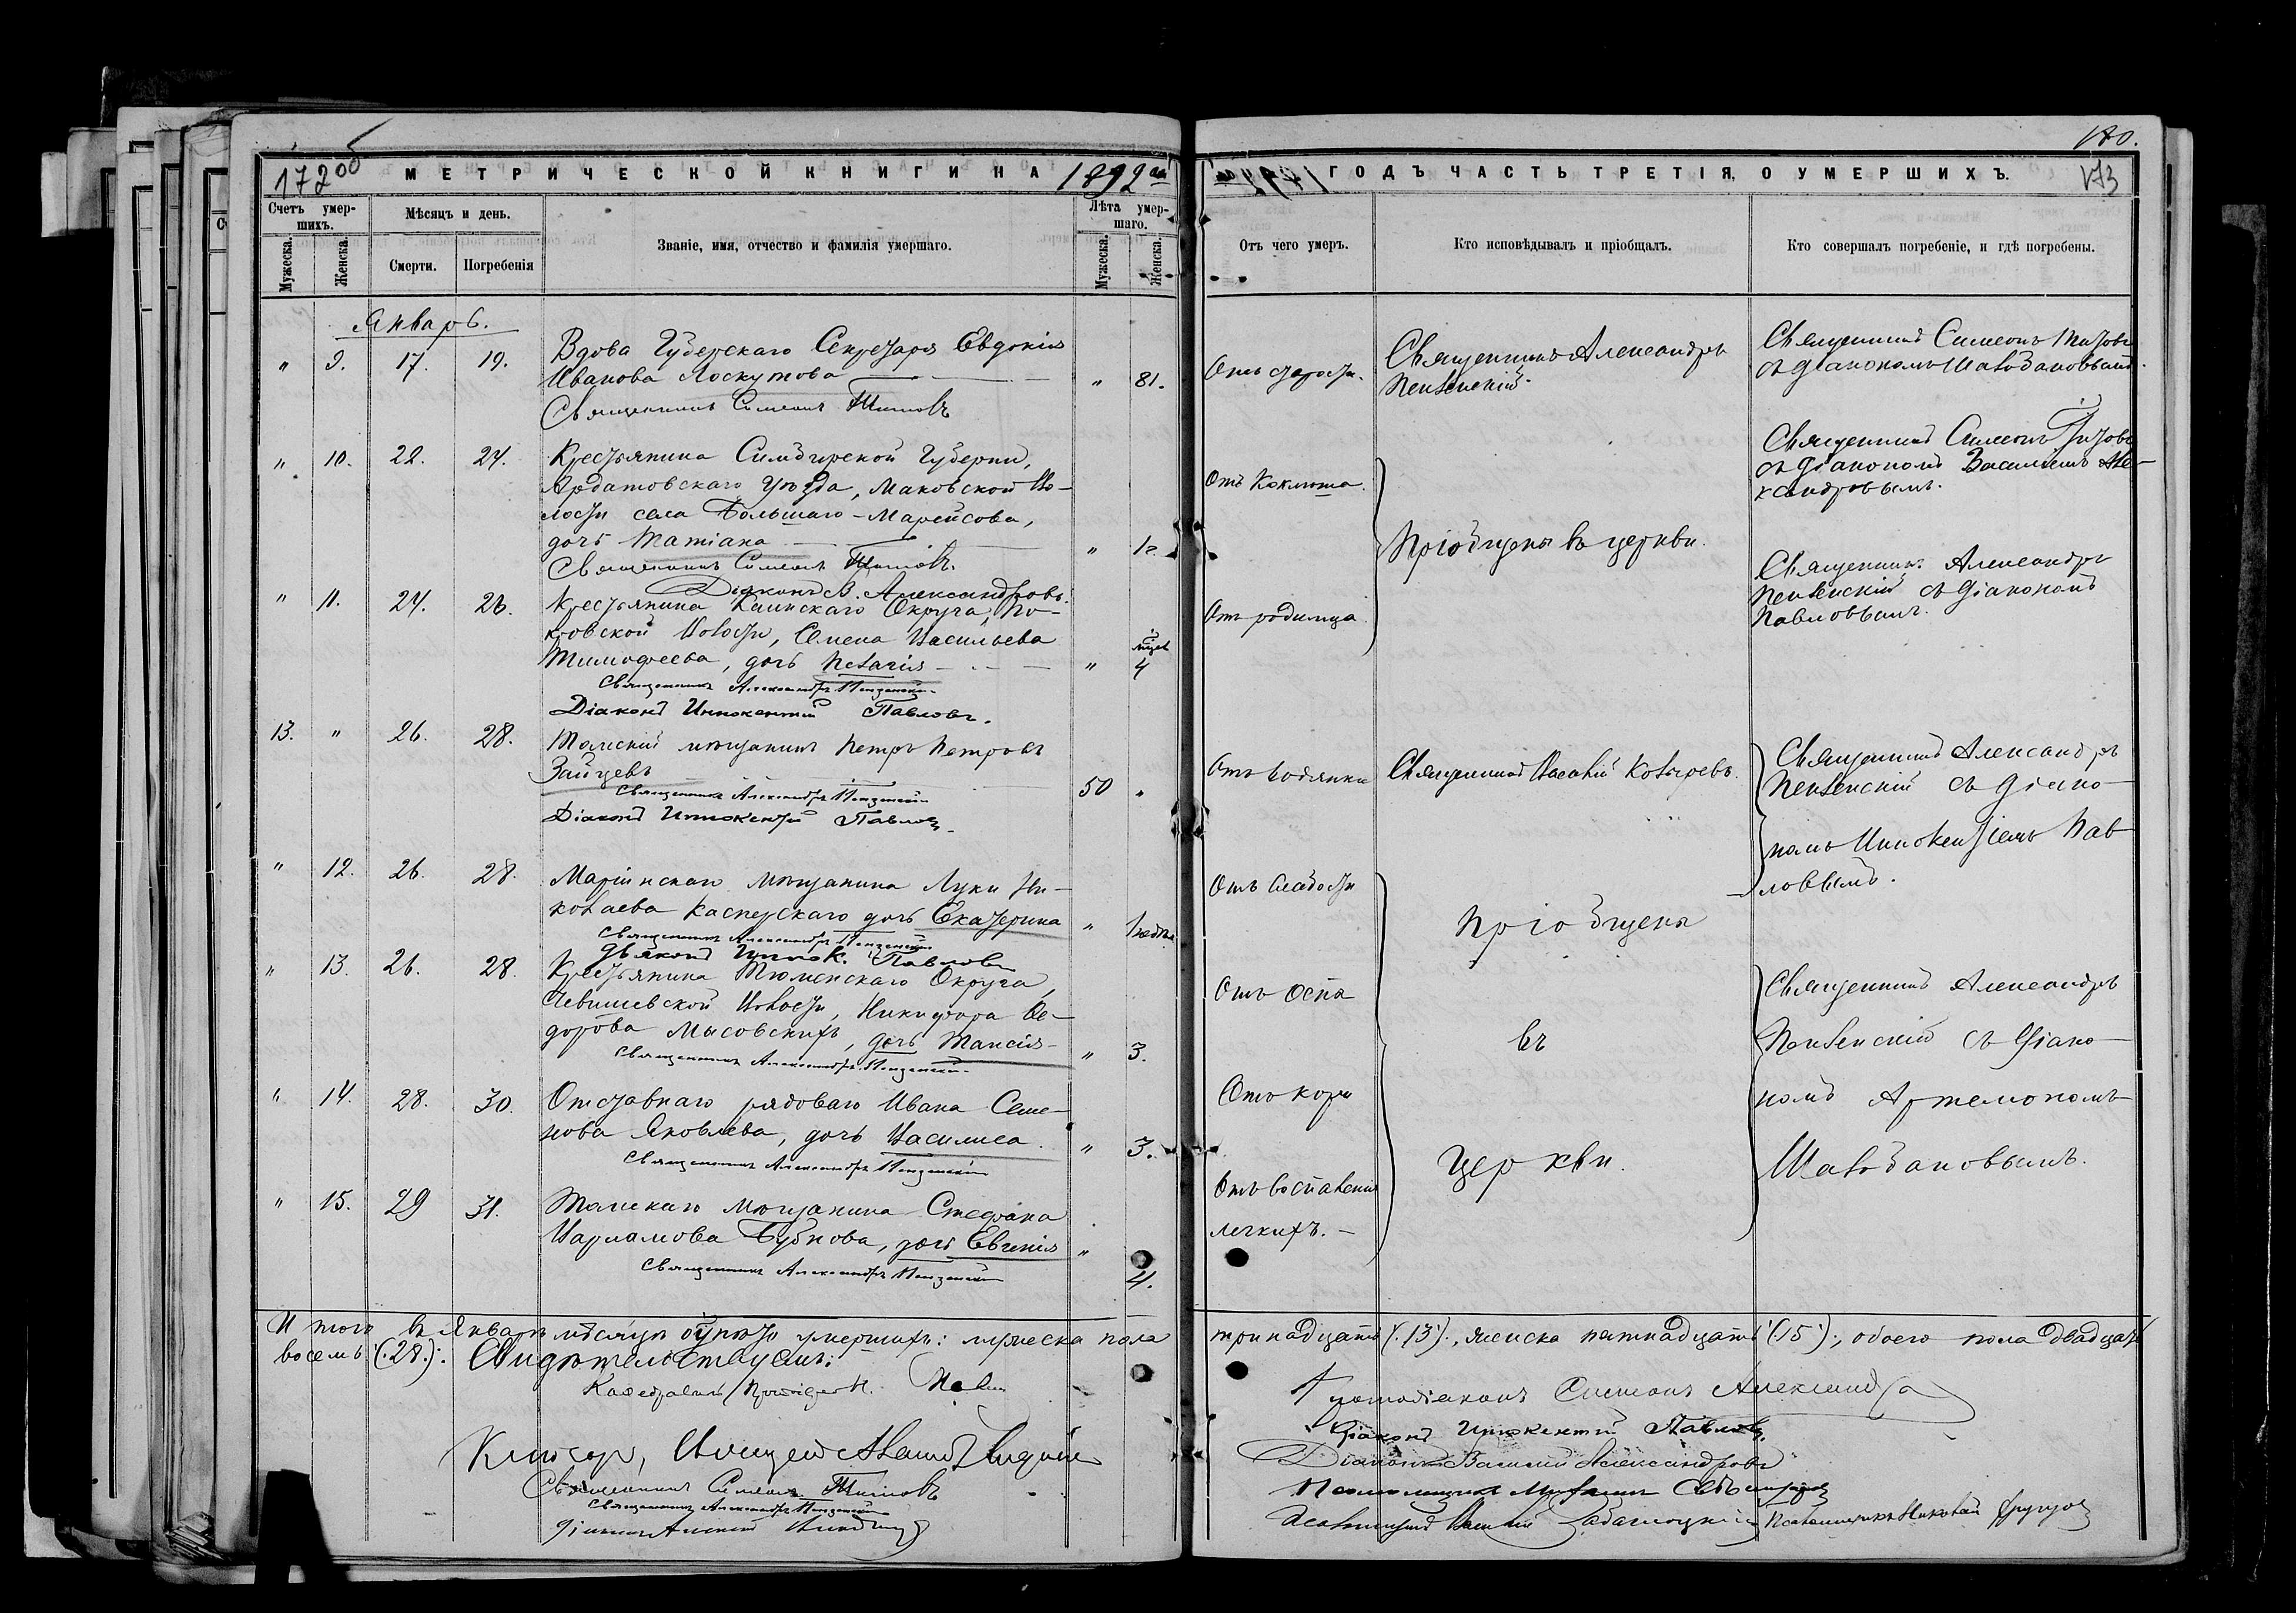 172 об
МЕТРИЧЕСКОЙ КНИГИ НА 1892
Счетъ умер-
шихъ.
Мѣсяцъ и день.
Лѣта умер-
шаго.
Мужеска.
Женска.
Смерти.
Погребенія
Званіе, имя, отчество и фамилія умершаго.
Мужеска.
Женска.
Январь.
" 9. 17. 19. Вдова Губерскаго Секретаря Евдокія
Иванова Лоскутова " 81.
Священникъ Симеонъ Титовъ
" 10. 22. 24. Крестьянина Симбирской Губерніи,
Ардатовскаго уѣзда, Маковской Во-
лости села Большаго-Маресова,
дочь Татіана " 1 г.
Священникъ Симеонъ Титовъ.
Діаконъ В. Александровъ.
" 11. 24. 26. Крестьянина Каинскаго Округа, По-
кровской Волости, Семена Васильева
Тимофеева, дочь Пелагія " 4 мѣс.
Священникъ Александръ Пензенскій
Діаконъ Иннокентій Павловъ.
13. " 26. 28. Томскій мѣщанинъ Петръ Петровъ
Зайцевъ 50 "
Священникъ Александръ Пензенскій
Діаконъ Иннокентій Павловъ.
" 12. 26. 28. Маріинскаго мѣщанина Луки Ни-
колаева Касперскаго дочь Екатерина " 1 недѣл.
Священникъ Александръ Пензенскій
Дьяконъ Иннок. Павловъ
" 13. 26. 28. Крестьянина Тюменскаго Округа,
Червишевской Волости, Никифора Ѳе-
дорова Мысовскихъ, дочь Таисія " 3.
Священникъ Александръ Пензенскій
" 14. 28. 30. Отставнаго рядоваго Ивана Семе-
нова Яковлева, дочь Василиса " 3.
Священникъ Александръ Пензенскій
" 15. 29 31. Томскаго мѣщанина Стефана
Варламова Бубнова, дочь Евгенія " 4.
Священникъ Александръ Пензенскій
Итого въ Январѣ мѣсяцѣ умершихъ: мужеска пола
восемь (.28.). Свидѣтельствуемъ:
Каѳедральный
Ключарь,
Священникъ Симеонъ Титовъ
Священникъ Александръ Пензенскій
180.
ГОДЪ ЧАСТЬ ТРЕТІЯ, О УМЕРШИХЪ. 173
Отъ чего умеръ.
Кто исповѣдывалъ и пріобщалъ.
Кто совершалъ погребеніе, и гдѣ погребены.
Отъ старости.
Священникъ Александръ
Пензенскій.
Священникъ Симеонъ Титовъ
съ діакономъ Шалобановымъ.
Отъ Коклюша.
Священникъ Симеонъ Титовъ
съ діакономъ Василіемъ Але-
ксандровымъ.
Пріобщены въ церкви.
Отъ родимца
Священникъ Александръ
Пензенскій съ діакономъ
Павловымъ.
Отъ водянки
Священникъ Василій Колыревъ.
Священникъ Александръ
Пензенскій съ діако-
номъ Иннокентіемъ Пав-
ловымъ.
Отъ слабости
Пріобщены
Отъ оспы
въ
Священникъ Александръ
Пензенскій съ діако-
номъ Артемономъ
Шалобановымъ.
Отъ кори
церкви.
Отъ воспаленія
легкихъ.
тринадцать (.13.)., женска пятнадцать (.15.)., обоего пола двадцать
Протодіаконъ Симеонъ Александровъ
Діаконъ Иннокентій Павловъ.
Діаконъ Василій Александровъ
Псаломщикъ
Псаломщикъ Николай